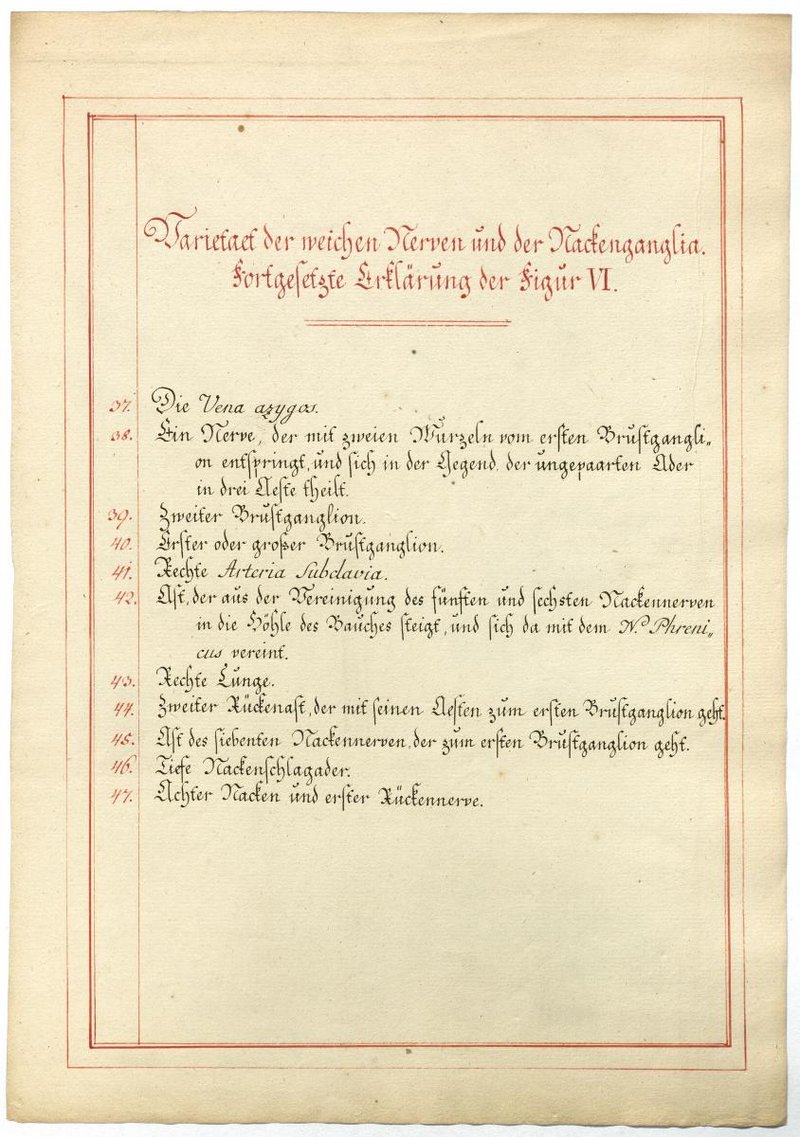 Varietaet der weichen Nerven und der Nackenganglia.
Fortgesetzte Erklärung der Figur VI.
37. Die Vena azygos.
38. Ein Nerve, der mit zweien Wurzeln vom ersten Brustgangli„
on entspringt, und sich in der Gegend der ungepaarten Ader
in drei Aeste theilt.
39. Zweiter Brustganglion.
40. Erster oder großer Brustganglion.
41. Rechte Arteria Subclavia.
42. Ast, der aus der Vereinigung des fünften und sechsten Nackennerven
in die Höhle des Bauches steigt, und sich da mit dem N.º Phreni„
cus vereint.
43. Rechte Lunge.
44. Zweiter Rückenast, der mit seinen Aesten zum ersten Brustganglion geht.
45. Ast des siebenten Nackennerven, der zum ersten Brustganglion geht.
46. Tiefe Nackenschlagader.
47. Achter Nacken und erster Rückennerve.